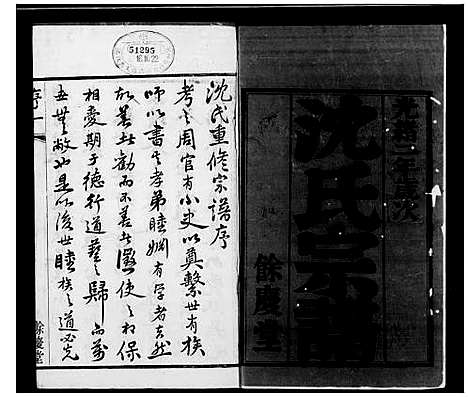 光緒二年歲次
沈氏宗譜
餘慶堂
51295
沈氏重修宗譜序
考之周官有小史以奠繫世有族
師以書其孝弟睦婣有學者去然
故善此勸而不善此懲使之相保
相愛期于德行道藝之歸而萬
世是以後世睦族之道必先
序一
餘慶堂